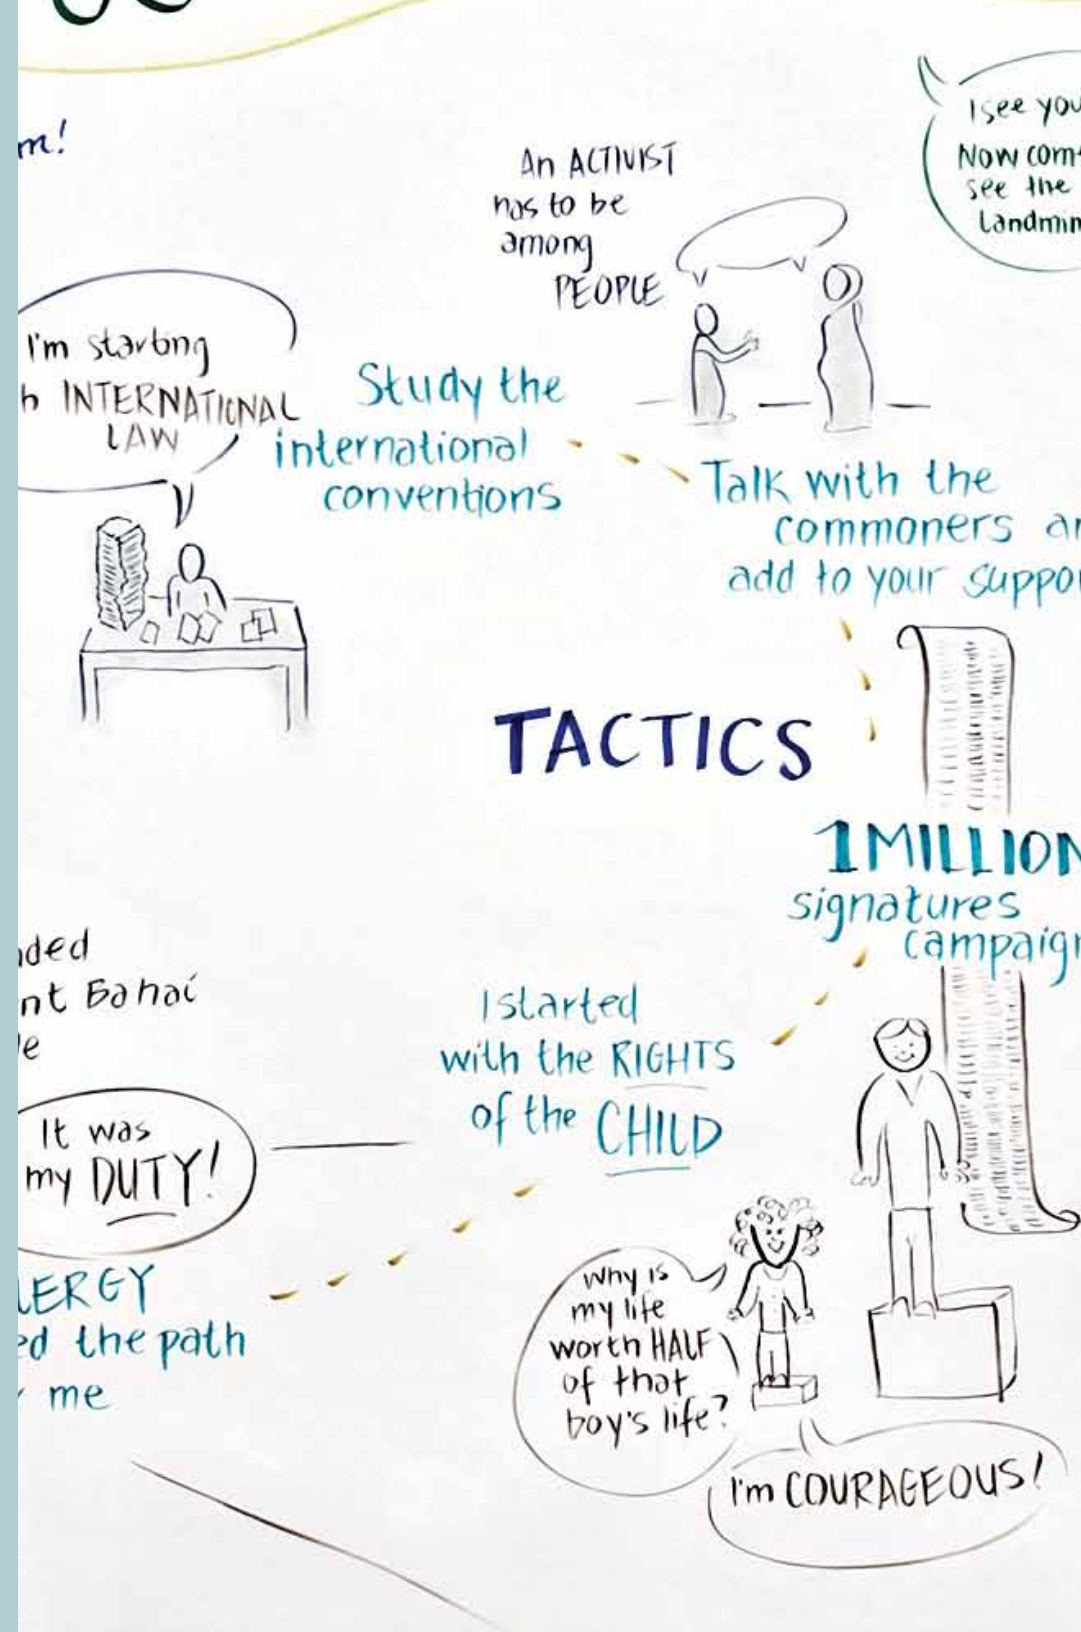 m!
An ACTIVIST
has to be
among
PEOPLE
I see you
Now com
see the
Landmin
I'm starting
h INTERNATIONAL
LAW
Study the
international
conventions
Talk with the
commoners an
add to your suppor
TACTICS
1 MILLION
signatures
campaign
ded
nt Bahaí
e
It was
my DUTY!
I started
with the RIGHTS
of the CHILD
LERGY
ed the path
me
Why is
my life
worth HALF
of that
boy's life?
I'm COURAGEOUS!